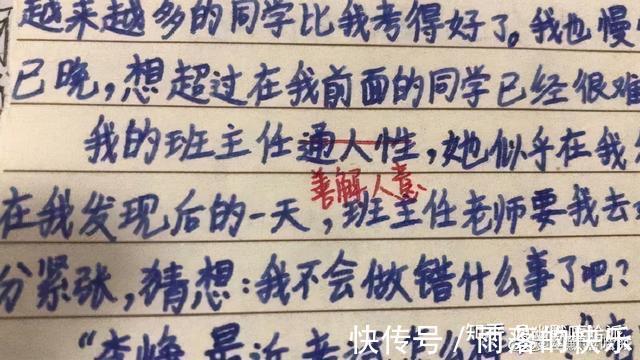 越来越多的同学比我考得好了。我也慢
已晚,想超过在我前面的同学已经很难
我的班主任通人性,她似乎在我
善解人意
在我发现后的一天,班主任老师要我去
分紧张,猜想:我不会做错什么事了吧?
快传号/雨落的快乐